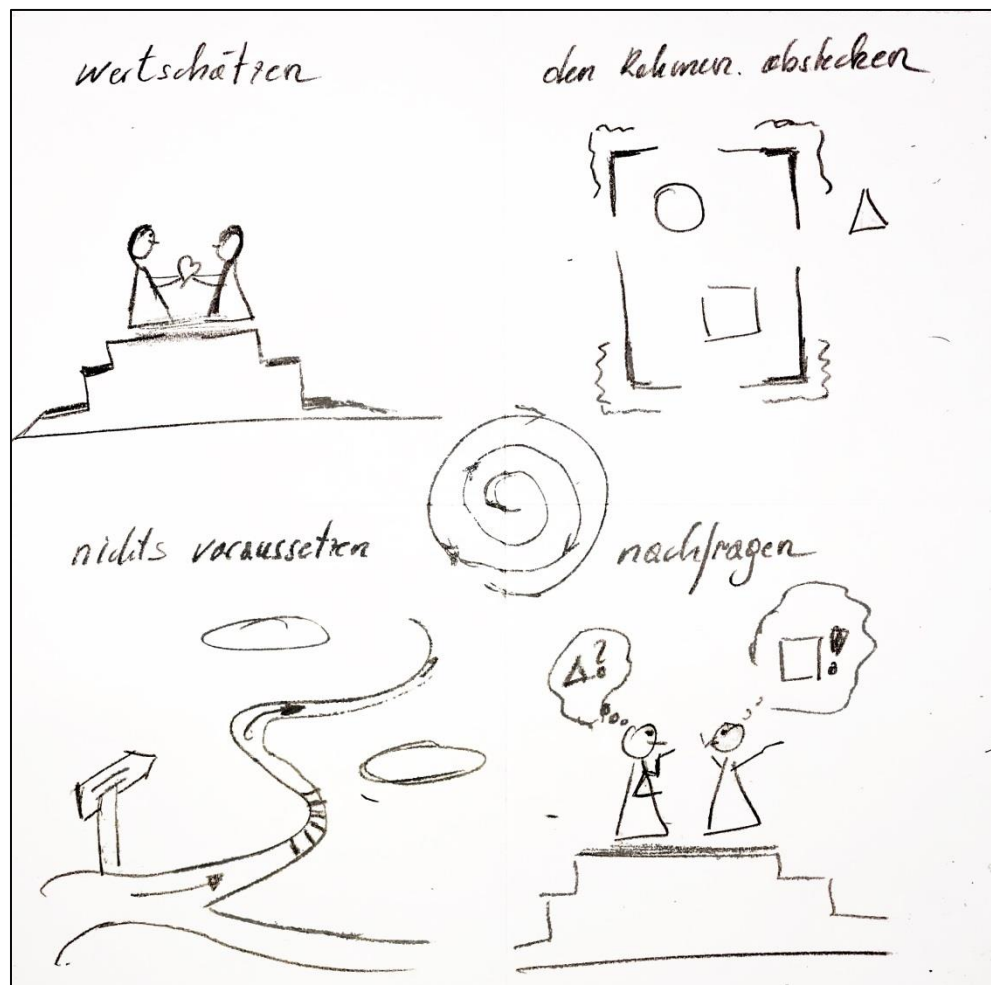 wertschätzen
den Rahmen abstecken
nichts voraussetzen
nachfragen
?
!